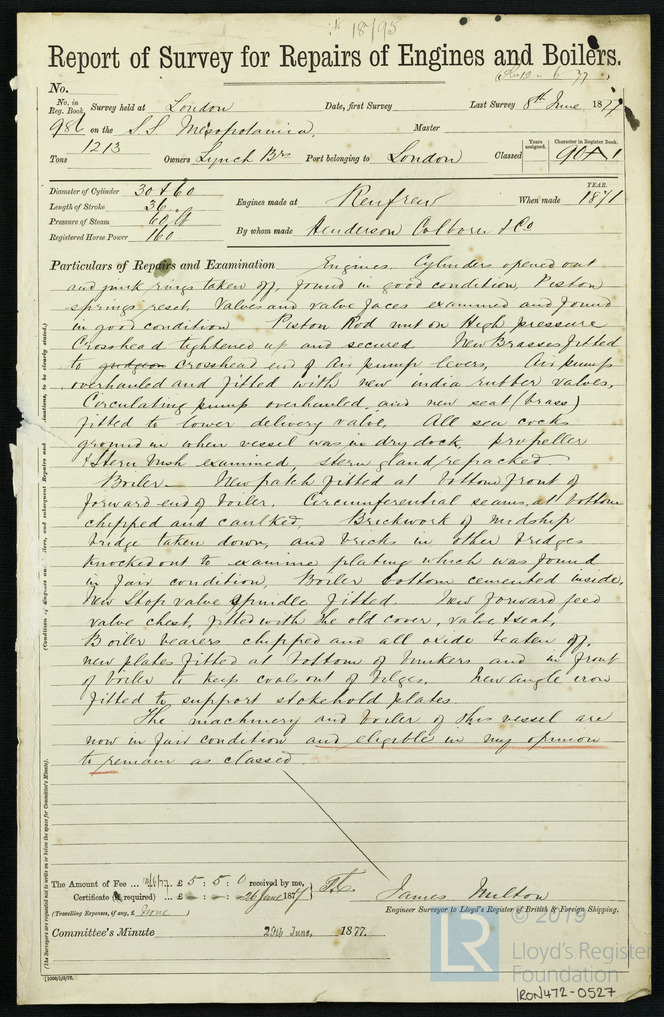 18/95
Report of Survey for Repairs of Engines and Boilers.
No.
No. in Reg. Book. Survey held at London Date, first Survey Last Survey 8th June 1877
986 on the S.S. Mesopotamia. Master
Tons 1213 Owners Lynch Brs Port belonging to London Classed Years assigned. Character in Register Book. 90A1
Diameter of Cylinder 30 & 60
Length of Stroke 36
Pressure of Steam 60 lb
Registered Horse Power 160
Engines made at Renfrew When made YEAR. 1871
By whom made Henderson Colborn & Co
Particulars of Repairs and Examination Engines. Cylinders opened out
and junk rings taken off, found in good condition, Piston
springs reset. Valves and valve faces examined and found
in good condition Piston Rod nut on High pressure
Crosshead tightened up and secured. New Brasses fitted
to gudgeon crosshead end of Air pump levers, Air pump
overhauled and fitted with new india rubber valves,
Circulating pump overhauled, and new seat (brass)
fitted to lower delivery valve, All sea cocks
ground in when vessel was in dry dock, propeller
& Stern bush examined, stern gland repacked
Boiler - New patch fitted at bottom front of
forward end of boiler. Circumferential seams, at bottom
chipped and caulked, Brickwork of midship
bridge taken down, and bricks in other bridges
knocked out to examine plating which was found
in fair condition, Boiler bottom cemented inside,
New Stop valve spindle fitted New forward feed
valve chest, fitted with the old cover, valve & seat,
Boiler bearers chipped and all oxide beaten off,
new plates fitted at bottom of bunkers and in front
of boiler to keep coals out of bilges. New angle iron
fitted to support stokehold plates.
The machinery and boiler of this vessel are
now in fair condition and eligible in my opinion
to remain as classed.
The Amount of Fee ... 12/6/77 £ 5 : 5 : 0 received by me,
Certificate (if required) ... £ - : - : - 26 June 1877
(Travelling Expenses, if any, £ None)
James Milton
Engineer Surveyor to Lloyd's Register of British & Foreign Shipping.
Committee's Minute 29th June, 1877.
(The Surveyors are requested not to write on or below the space for Committee's Minute).
© 2019
LR
Lloyd's Register
Foundation
IRON472-0527